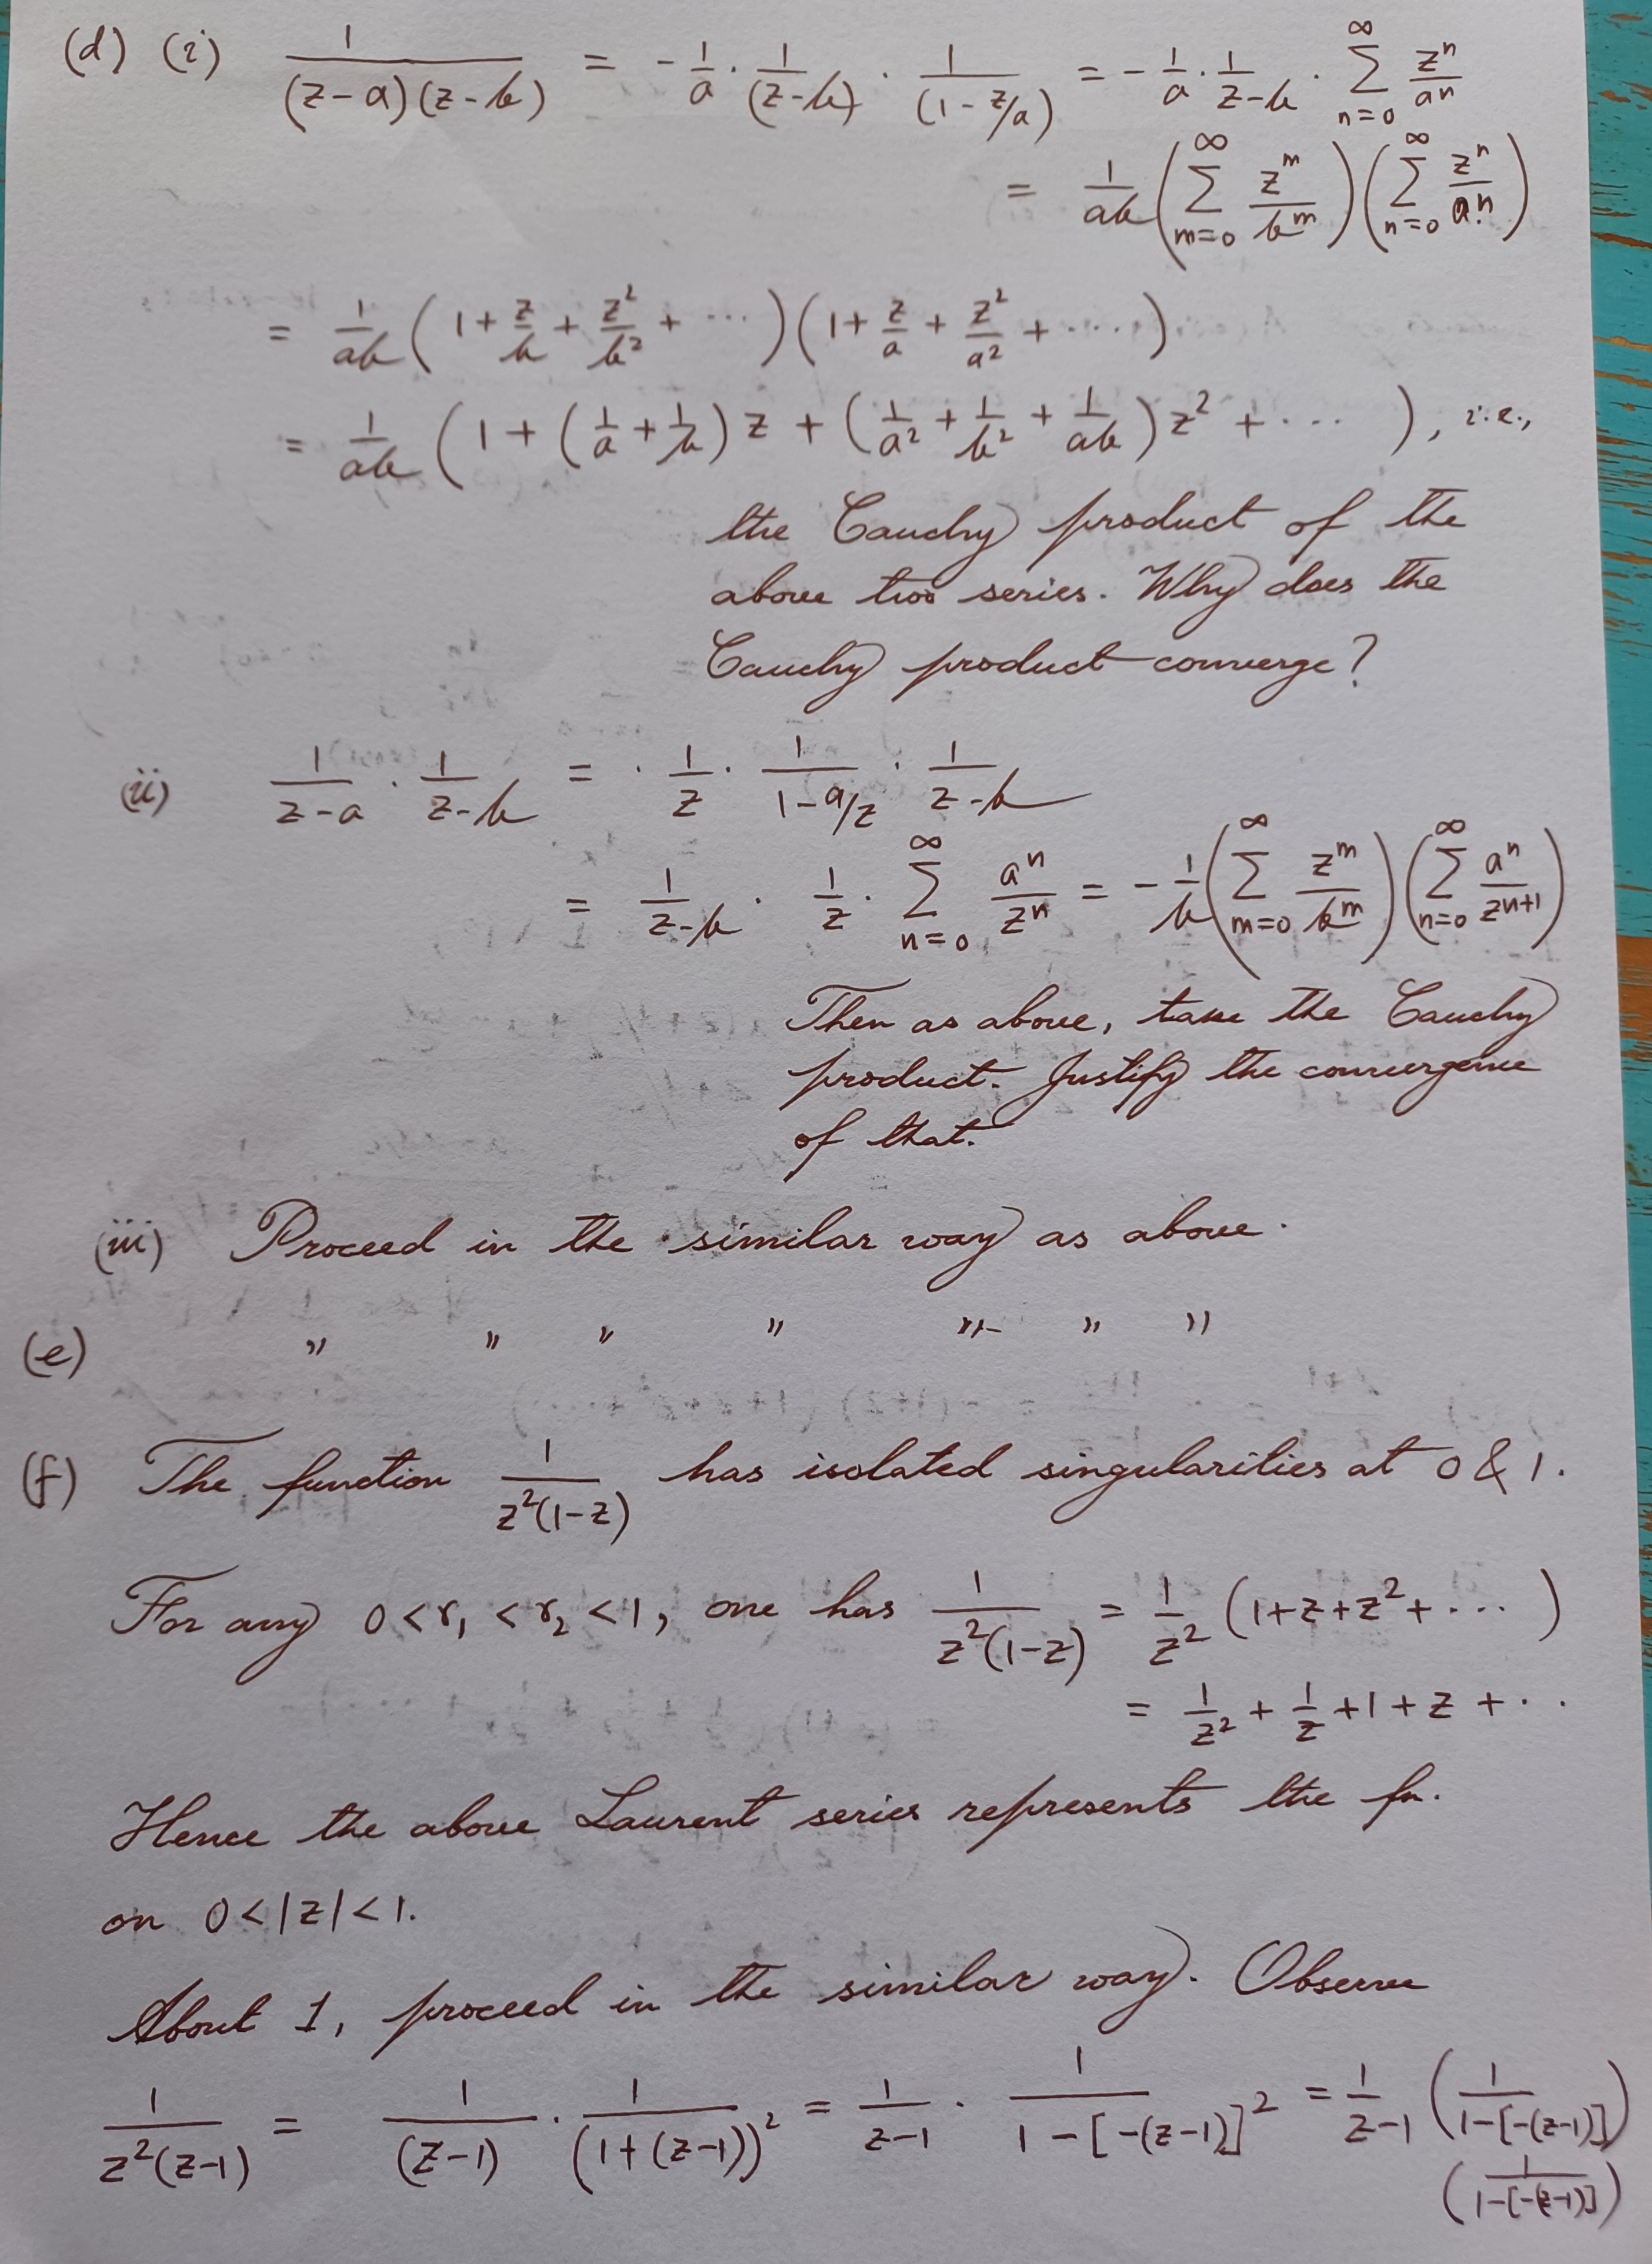 (d) (i) 1/((z-a)(z-b)) = -1/a · 1/(z-b) · 1/(1-z/a) = -1/a · 1/(z-b) · ∑_{n=0}^{∞} z^n/a^n
= 1/(ab) (∑_{m=0}^{∞} z^m/b^m) (∑_{n=0}^{∞} z^n/a^n)
= 1/(ab) (1 + z/b + z²/b² + ···) (1 + z/a + z²/a² + ····)
= 1/(ab) (1 + (1/a + 1/b) z + (1/a² + 1/b² + 1/(ab)) z² + ···), i.e.,
the Cauchy product of the
above two series. Why does the
Cauchy product converge?
(ii) 1/(z-a) · 1/(z-b) = · 1/z · 1/(1-a/z) · 1/(z-b)
= 1/(z-b) · 1/z · ∑_{n=0}^{∞} a^n/z^n = -1/b (∑_{m=0}^{∞} z^m/b^m) (∑_{n=0}^{∞} a^n/z^{n+1})
Then as above, take the Cauchy
product. Justify the convergence
of that.
(iii) Proceed in the similar way as above.
(e) " " " " " " "
(f) The function 1/(z²(1-z)) has isolated singularities at 0 & 1.
For any 0 < r₁ < r₂ < 1, one has 1/(z²(1-z)) = 1/z² (1+z+z²+···)
= 1/z² + 1/z + 1 + z + ··
Hence the above Laurent series represents the fn.
on 0<|z|<1.
About 1, proceed in the similar way. Observe
1/(z²(z-1)) = 1/(z-1) · 1/(1+(z-1))² = 1/(z-1) · 1/(1-[-(z-1)]²) = 1/(z-1) (1/(1-[-(z-1)]))
(1/(1-[-(z-1)]))